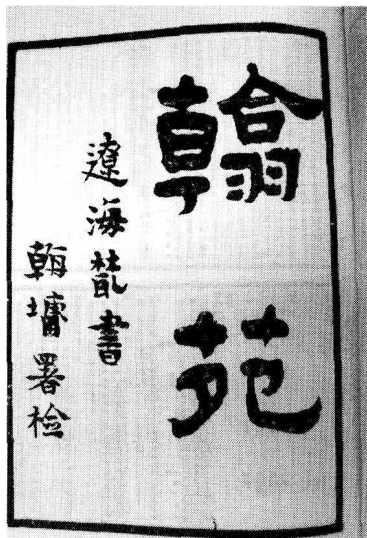 翰苑
遼海叢書
翰墉署检